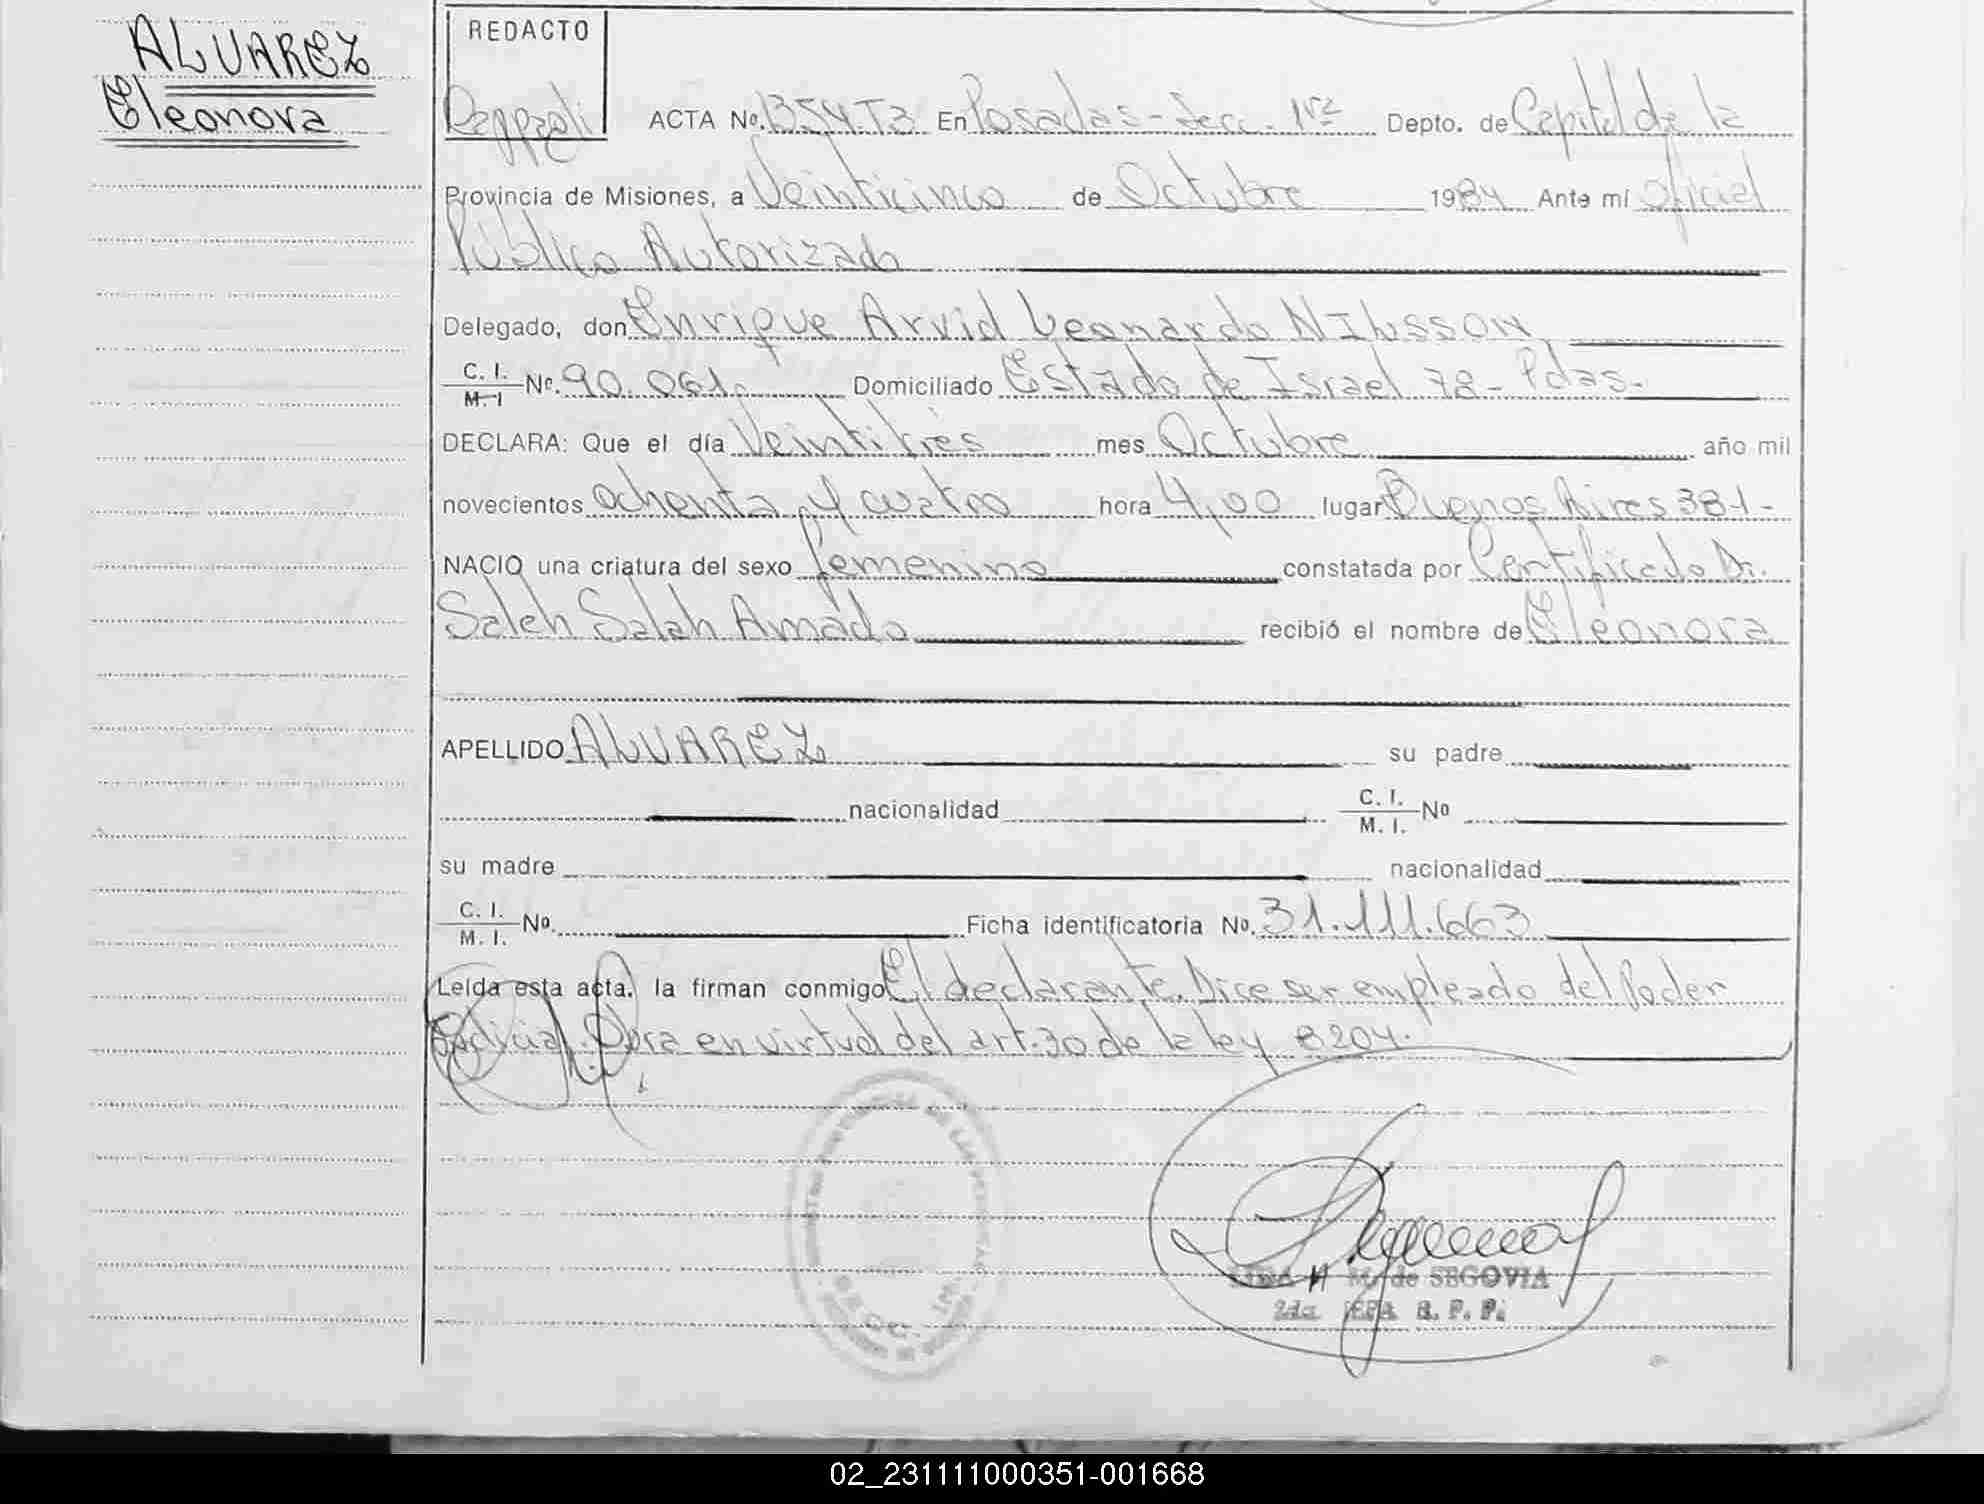 ALVAREZ
Eleonora
REDACTO
ACTA Nº. 1354.T3 En Posadas - Secc. 1ra Depto. de Capital de la
Provincia de Misiones, a Veinticinco de Octubre 1984 Ante mí Oficial
Público Autorizado
Delegado, don Enrique Arvid Leonardo NILSSON
C. I. M. I Nº. 90.061. Domiciliado Estado de Israel 78 - Pdas.
DECLARA: Que el día Veintitrés mes Octubre año mil
novecientos ochenta y cuatro hora 4,00 lugar Buenos Aires 381-
NACIO una criatura del sexo femenino constatada por Certificado Dr.
Saleh Salah Amado recibió el nombre de Eleonora
APELLIDO ALVAREZ su padre
nacionalidad C. I. M. I. Nº
su madre nacionalidad
C. I. M. I. Nº. Ficha identificatoria Nº. 31.111.663
Leída esta acta. la firman conmigo El declarante. Dice ser empleado del Poder
Judicial. Obra en virtud del art. 30 de la ley 8204.
M. de SEGOVIA
2da JEFA R. P. P.
02_231111000351-001668